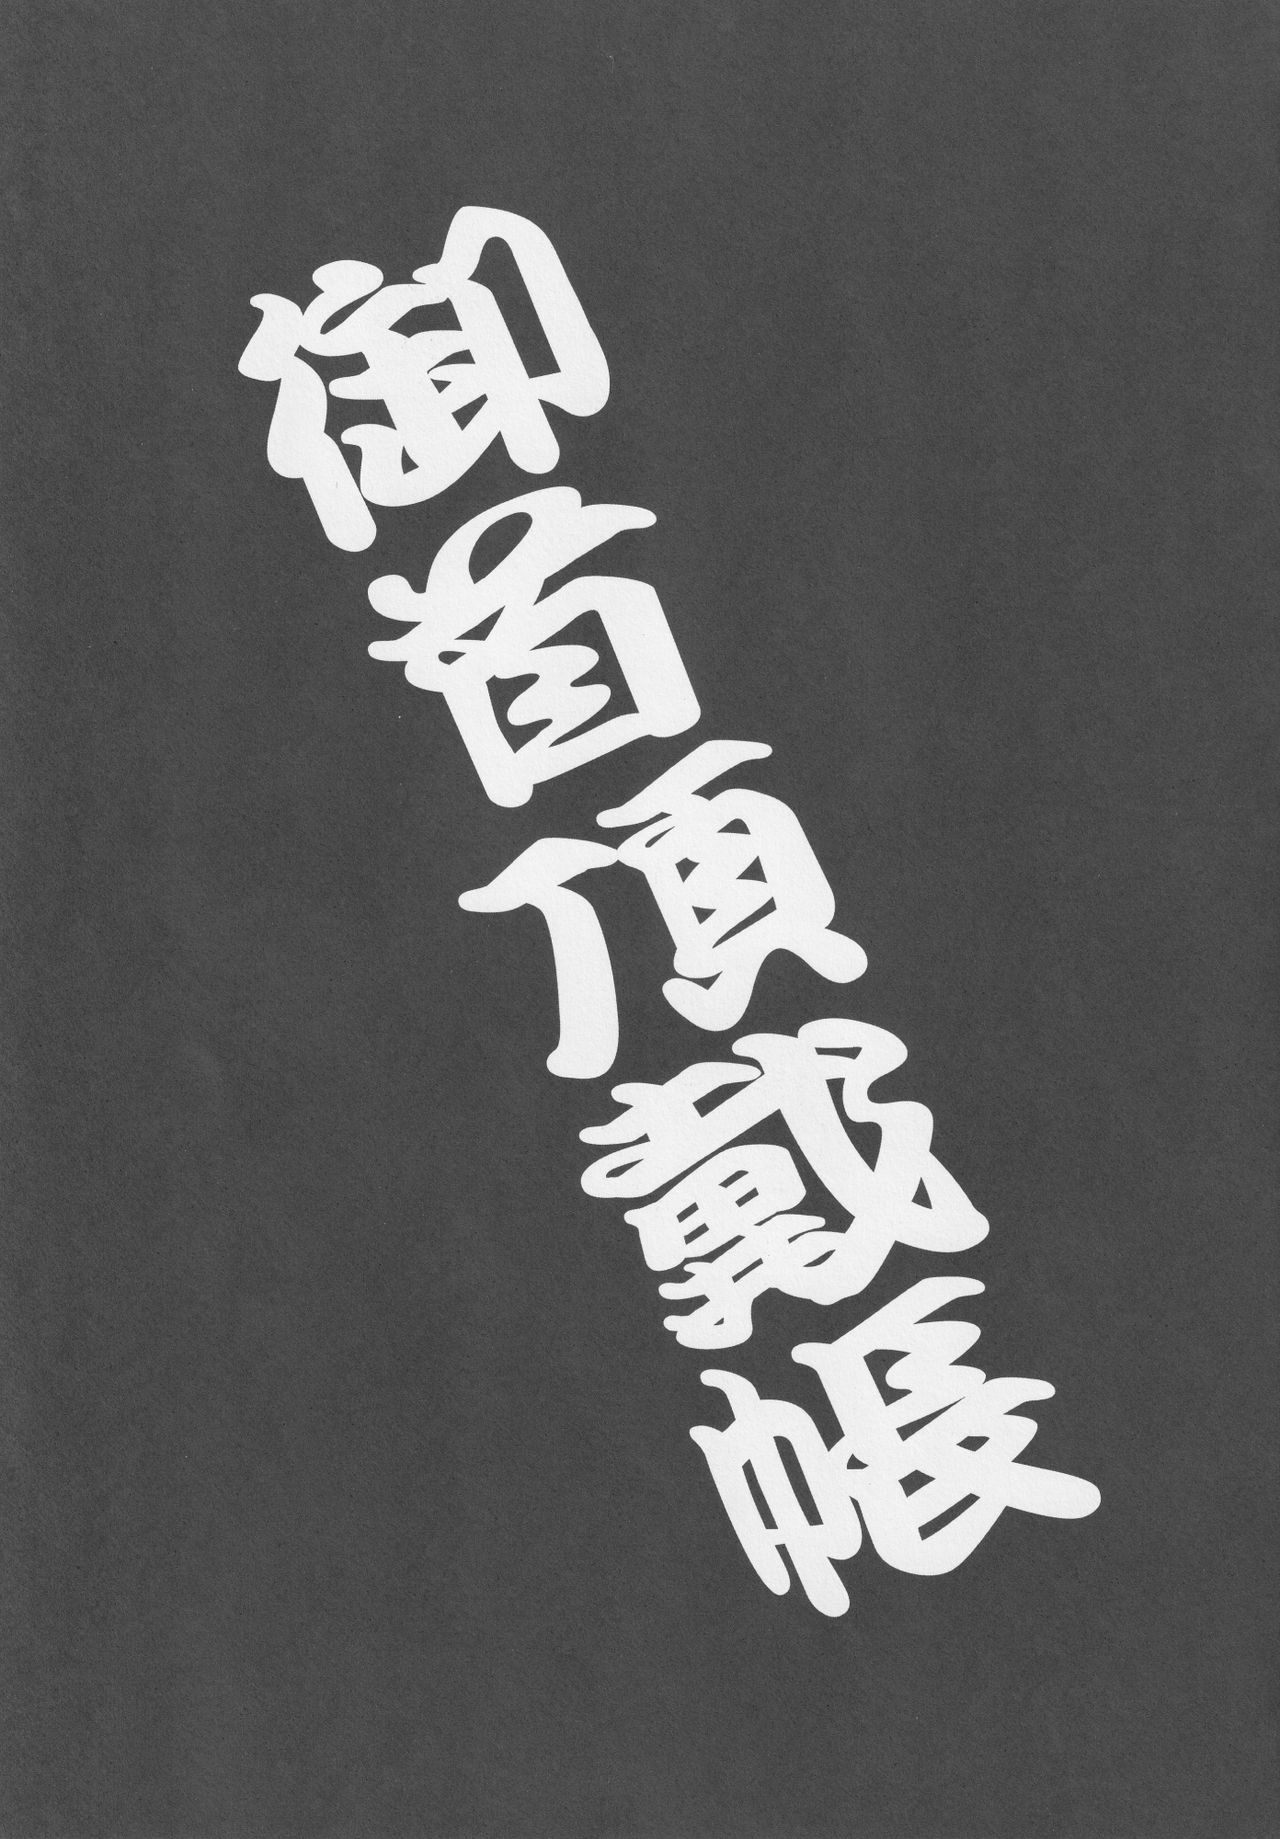 御首頂戴帳